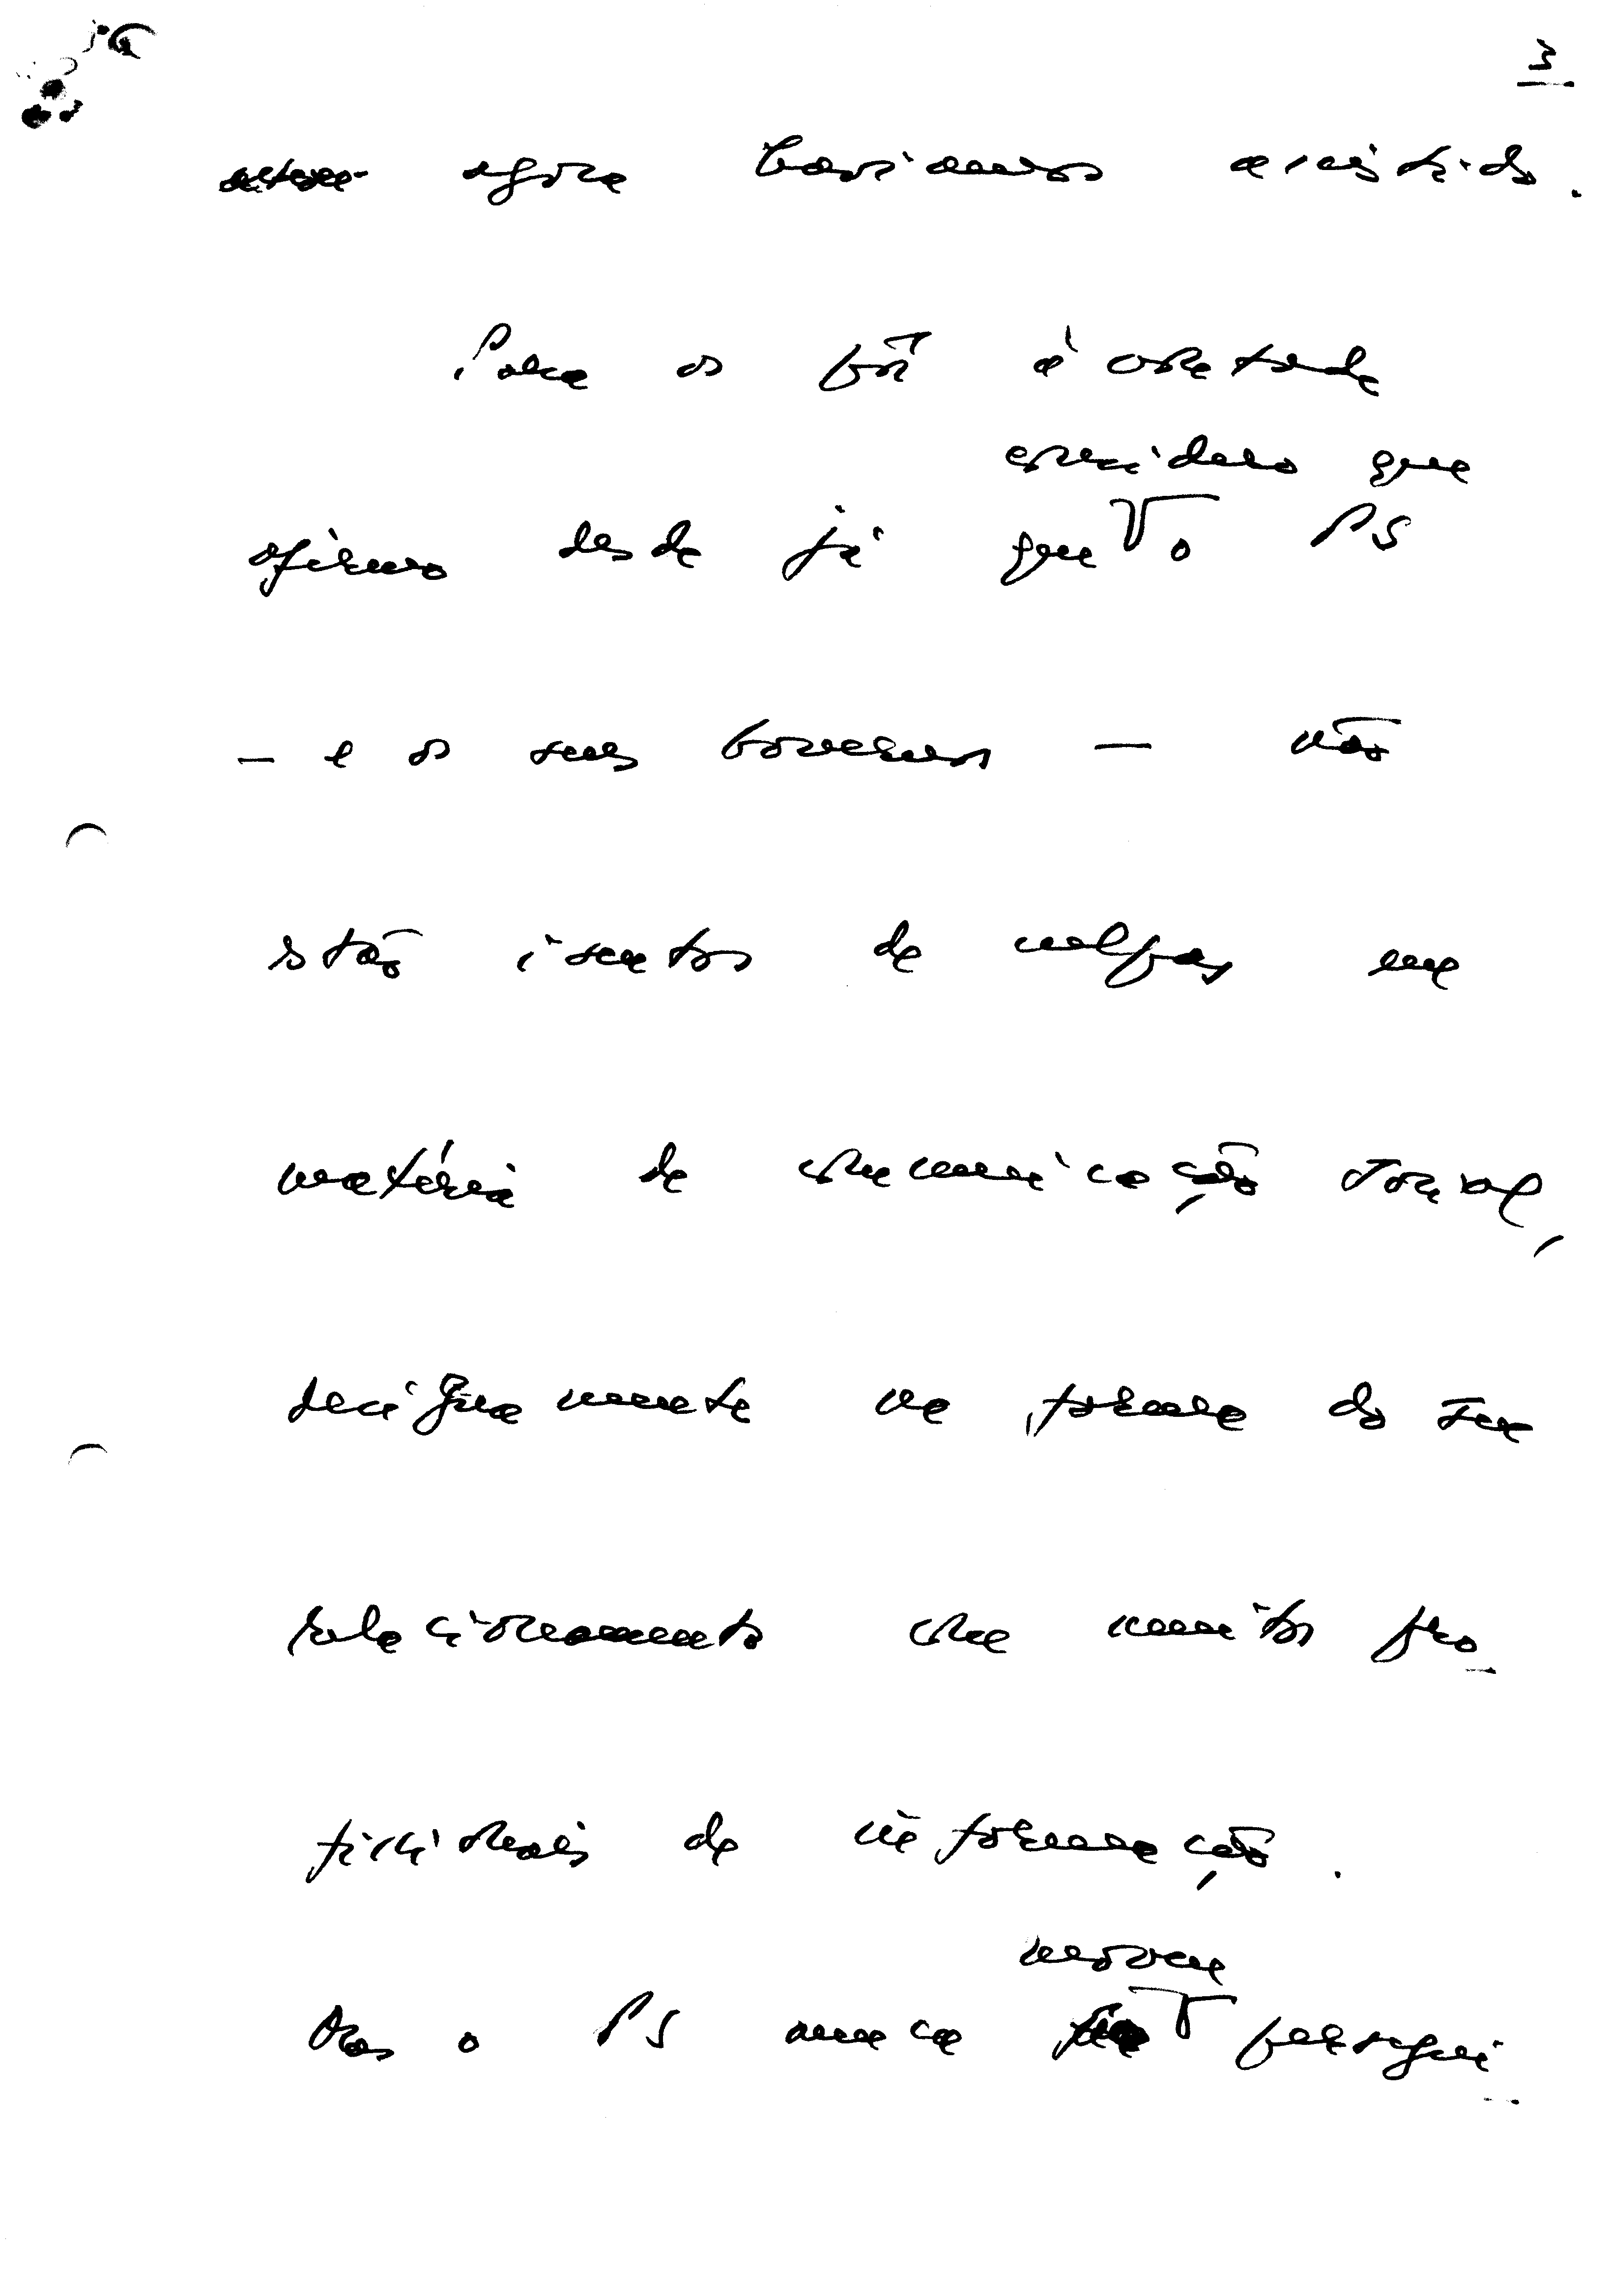 3
agora havíamos assistido.
Para os pôr à vontade
considero que
afirmo desde já que o PS
— e os seus Governos — não
estão isentos de culpas em
matéria de comunicação social,
designadamente na forma do seu
relacionamento com muitos pro-
fissionais de informação.
moveu
Mas o PS nunca persegui-